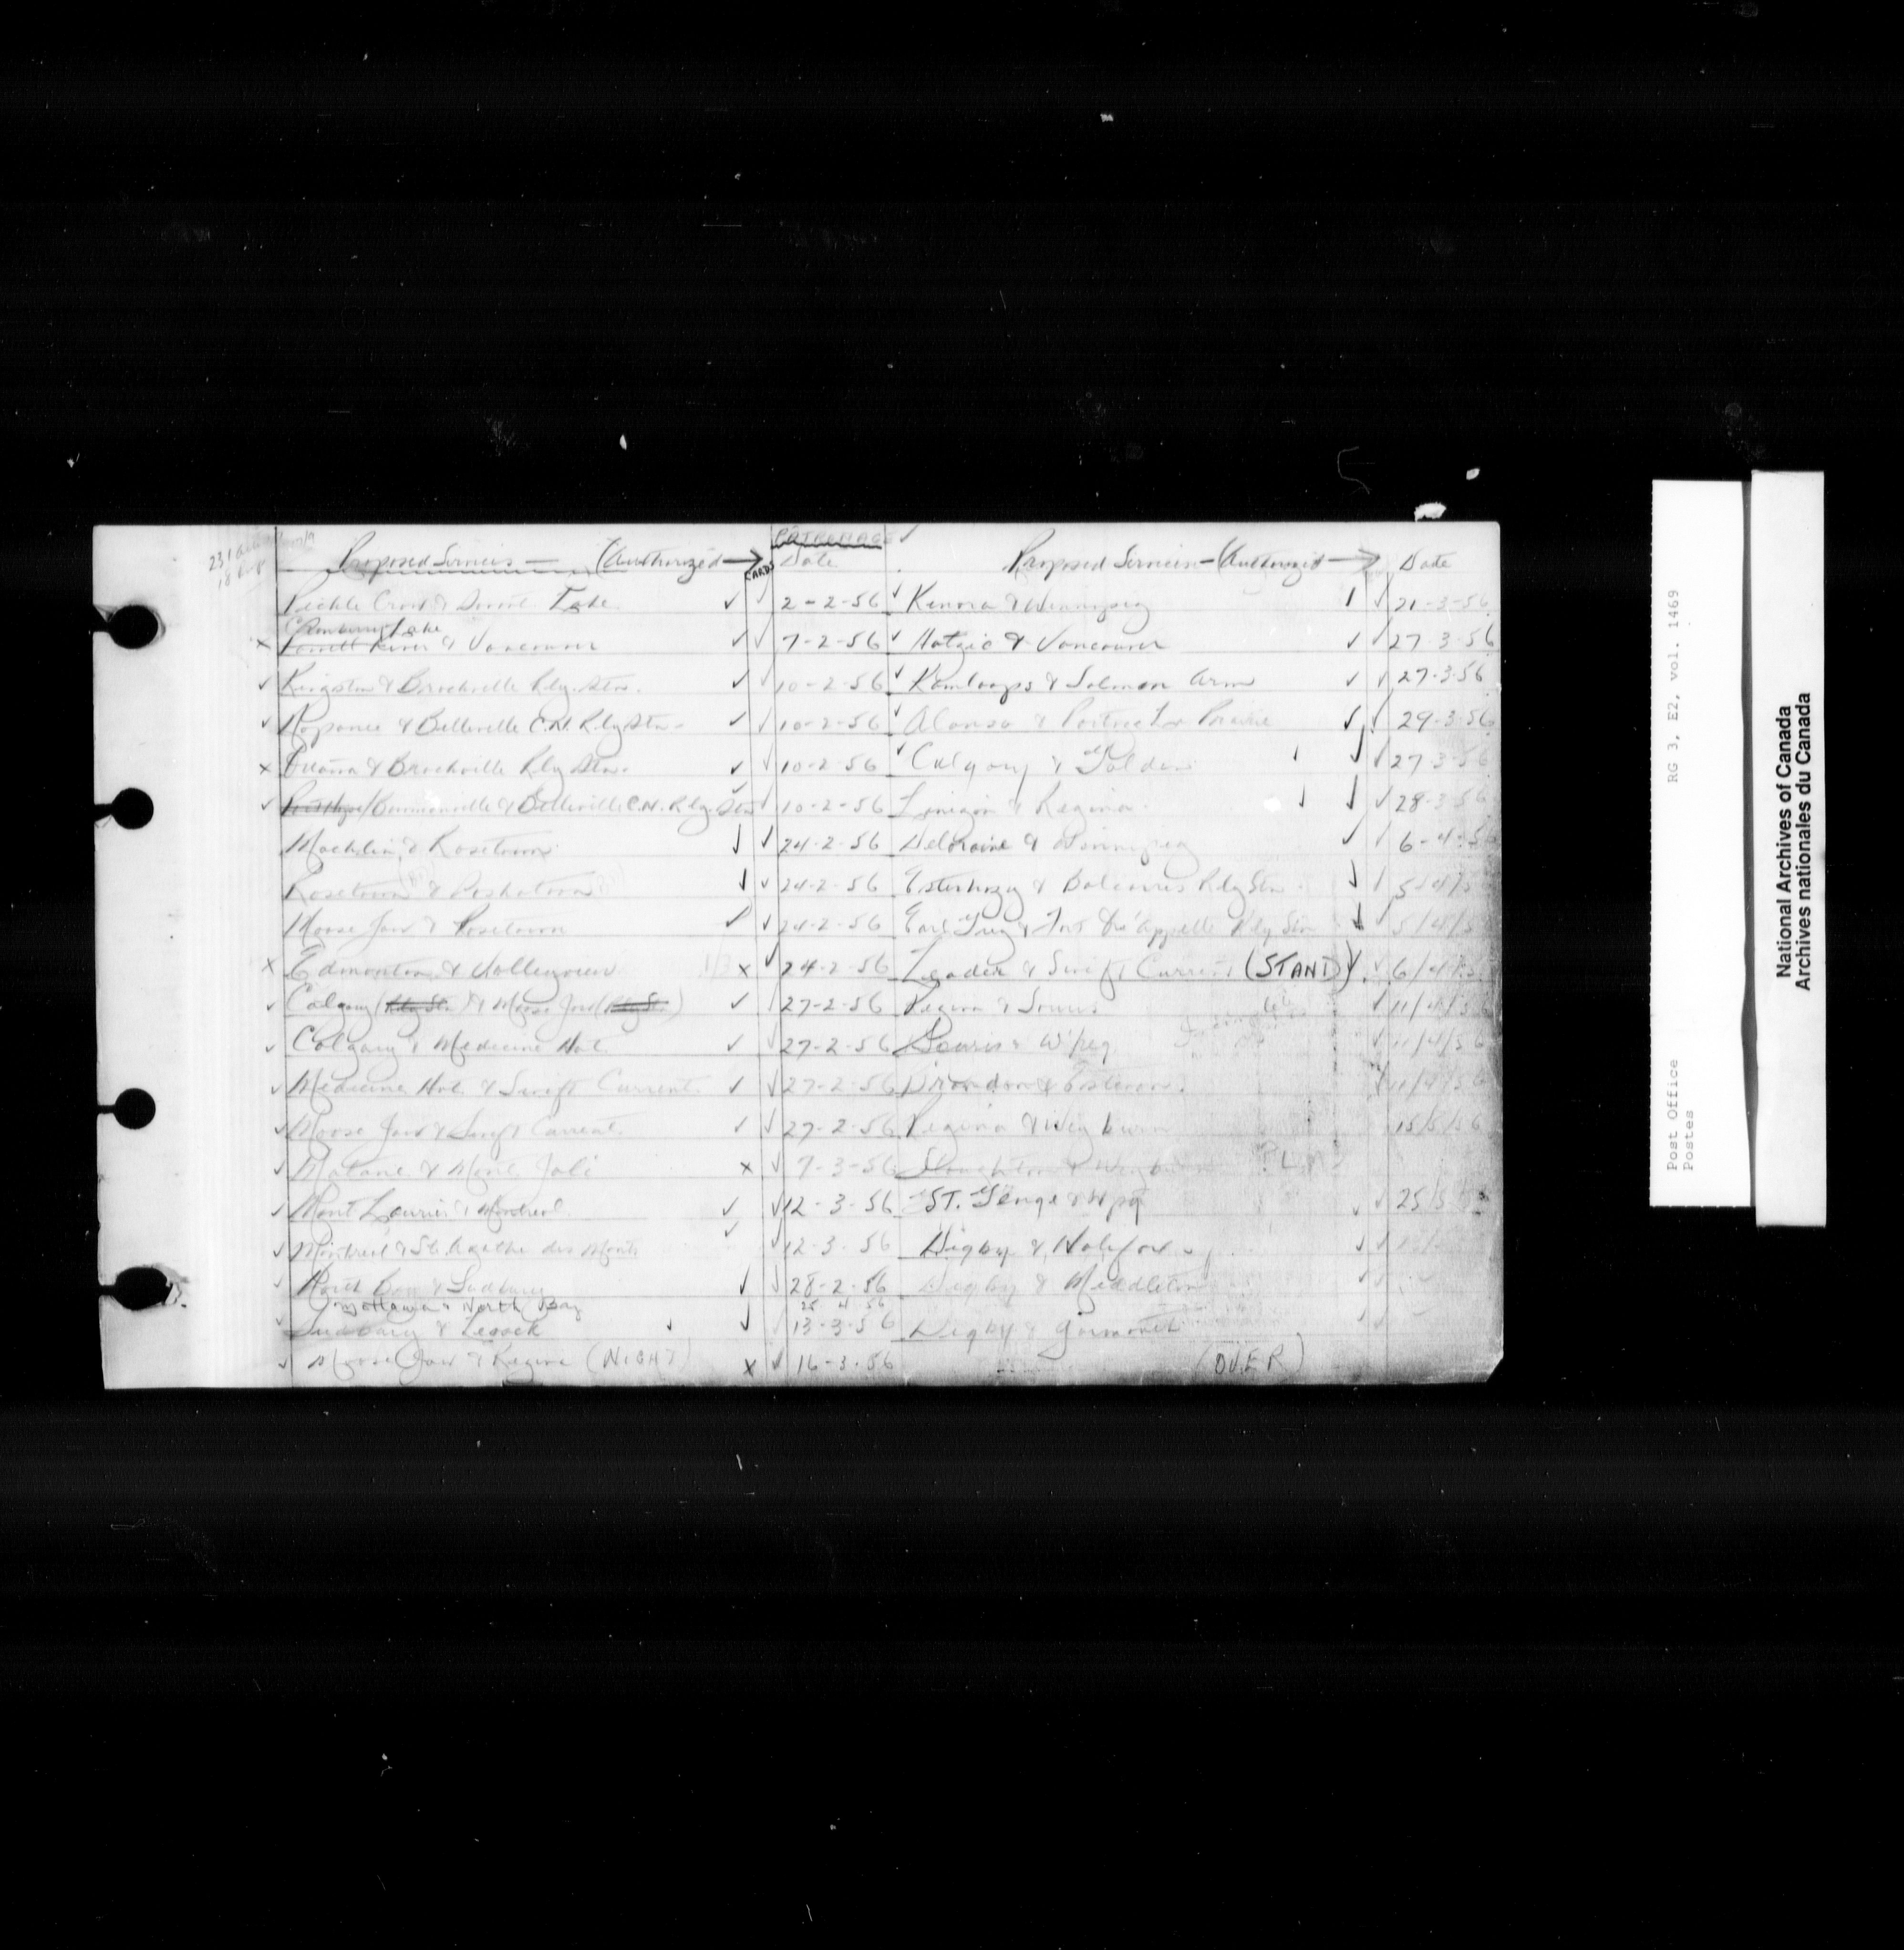 PATRONAGE
Proposed Services — (Authorized → CARDS Date
Pickle Crow & Lake 2-2-56
Cranberry Lake
Powell River & Vancouver 7-2-56
Kingston & Brockville Rly. Stn. 10-2-56
Napanee & Belleville C.N. Rly. Stn. 10-2-56
Ottawa & Brockville Rly Stn. 10-2-56
Port Hope/Bowmanville & Belleville C.N. Rly. Stn 10-2-56
Macklin & Rosetown 24-2-56
Rosetown & Saskatoon 24-2-56
Moose Jaw & Rosetown 24-2-56
Edmonton & Valleyview 24-2-56
Calgary (Rly Stn) & Moose Jaw (Rly St.) 27-2-56
Calgary & Medicine Hat 27-2-56
Medicine Hat & Swift Current 27-2-56
Moose Jaw & Swift Current 27-2-56
Matane & Mont Joli 7-3-56
Mont Laurier & Montreal 12-3-56
Montreal & Ste Agathe des Monts 12-3-56
North Bay & Sudbury 28-2-56
Ottawa & North Bay 25 4 56
Sudbury & Levack 13-3-56
Moose Jaw & Regina (NIGHT) 16-3-56
Proposed Services — (Authorized → Date
Kenora & Winnipeg 21-3-56
Hatzic & Vancouver 27-3-56
Kamloops & Salmon Arm 27-3-56
Alonsa & Portage La Prairie 29-3-56
Calgary & Golden 27-3-56
Lanigan & Regina 28-3-56
Deloraine & Winnipeg 6-4-56
Esterhazy & Balcarres Rly Stn 5/4/5
Earl Grey & Fort Qu'appelle Rly Stn 5/4/5
Leader & Swift Current (STAND) 6/4/5
Regina & Souris 11/4/56
Souris & W'peg 11/4/56
Brandon & Estevan 11/4/56
Regina & Weyburn 15/5/56
Stoughton & Weyburn
ST. George & Wpg 25/5
Digby & Halifax
Digby & Middleton
Digby & Yarmouth
(OVER)
RG 3, E2, vol. 1469
Post Office
Postes
National Archives of Canada
Archives nationales du Canada